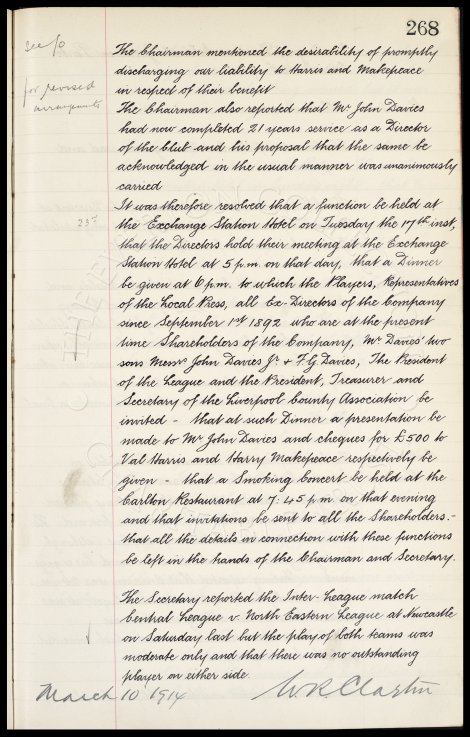 268
See p
for revised
arrangements
The Chairman mentioned the desirability of promptly
discharging our liability to Harris and Makepeace
in respect of their benefit
The Chairman also reported that Mr John Davies
had now completed 21 years service as a Director
of the Club and his proposal that the same be
acknowledged in the usual manner was unanimously
carried
It was therefore resolved that a function be held at
23rd
the Exchange Station Hotel on Tuesday the 17th inst,
that the Directors hold their meeting at the Exchange
Station Hotel at 5 p.m. on that day, that a Dinner
be given at 6 p.m. to which the Players, Representatives
of the Local Press, all Ex-Directors of the Company
since September 1st 1892 who are at the present
time Shareholders of the Company, Mr Davies' two
sons Messrs John Davies Jr. & F. G. Davies, The President
of the League and the President, Treasurer and
Secretary of the Liverpool County Association be
invited - that at such Dinner a presentation be
made to Mr John Davies and cheques for £500 to
Val Harris and Harry Makepeace respectively be
given - that a Smoking Concert be held at the
Carlton Restaurant at 7:45 p.m. on that evening
and that invitations be sent to all the Shareholders.-
that all the details in connection with these functions
be left in the hands of the Chairman and Secretary.
The Secretary reported the Inter-League match
Central League v. North Eastern League at Newcastle
on Saturday last but the play of both teams was
moderate only and that there was no outstanding
player on either side.
March 10 1914 W. R. Clayton